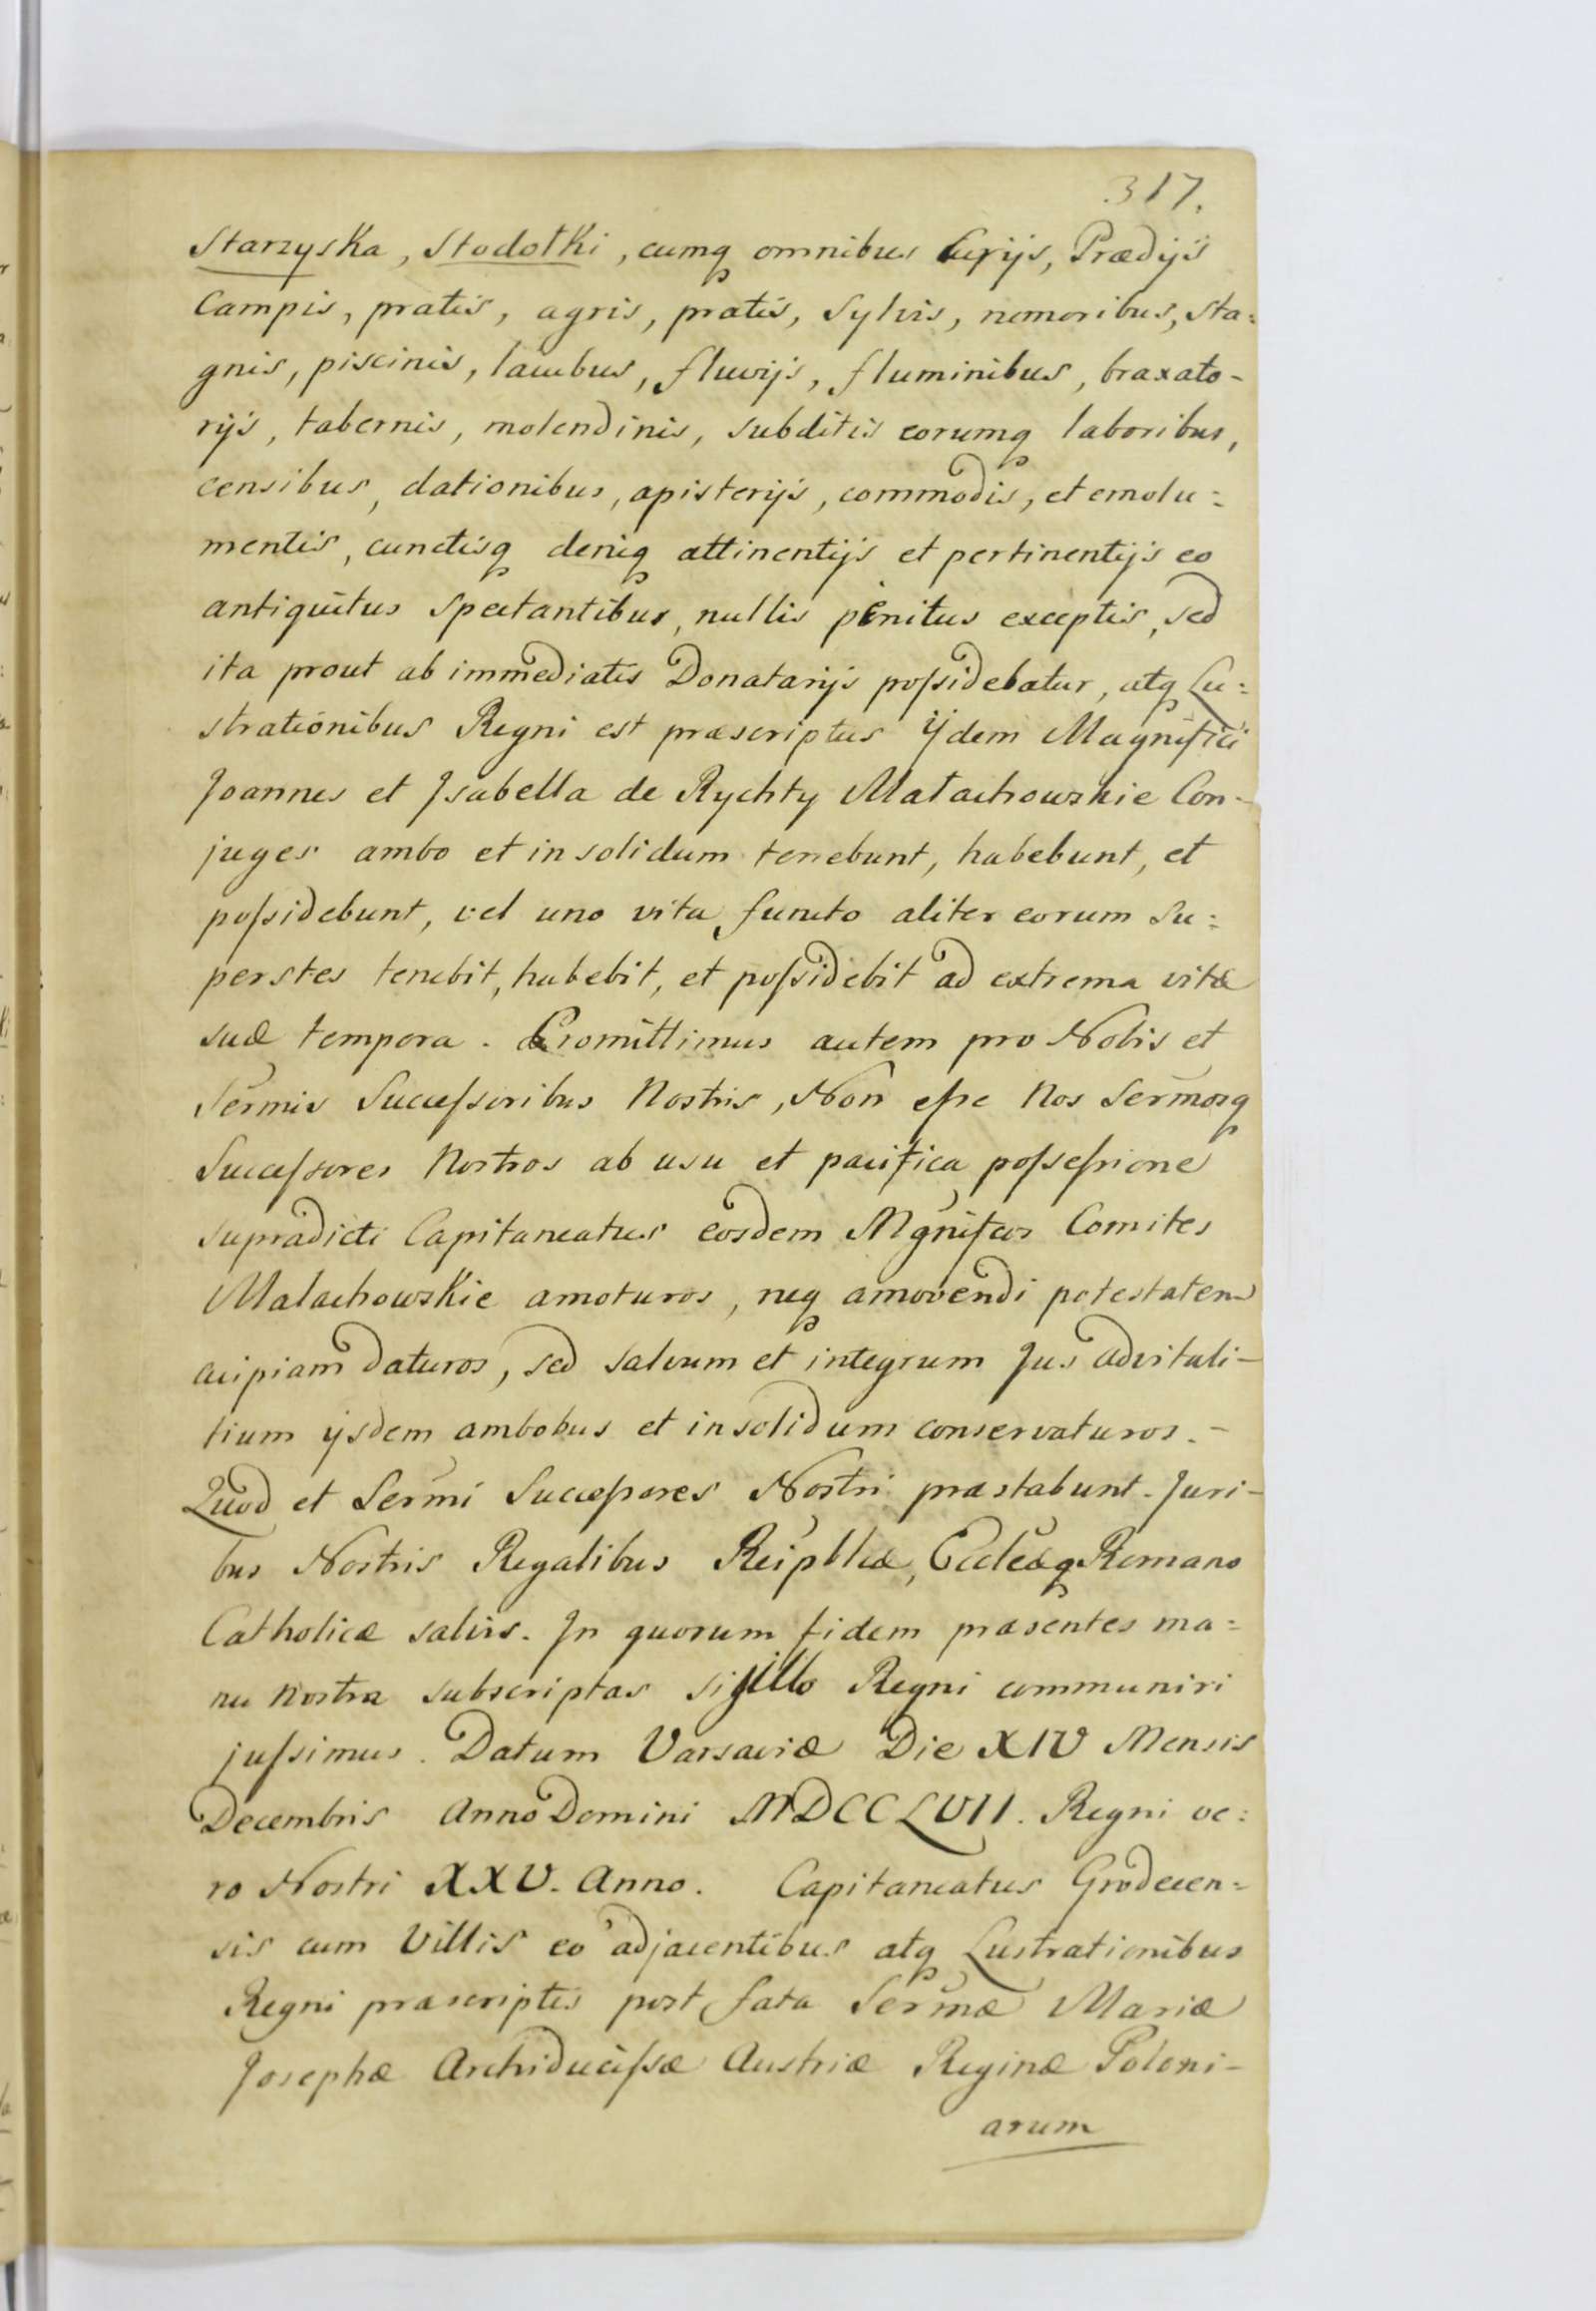 317.
Starzyska, Stodołki, cumq omnibus Curijs, Prædijs
Campis, pratis, agris, pratis, Sylvis, nemoribus, sta=
gnis, piscinis, lacubus, fluvijs, fluminibus, braxato-
rijs, tabernis, molendinis, subditis eorumq laboribus,
censibus, dationibus, apisterijs, commodis, et emolu=
mentis, cunctisq deniq attinentijs et pertinentijs eo
antiquitus Spectantibus, nullis penitus exceptis, sed
ita prout ab immediatis Donatarijs poſsidebatur, atq Lu=
strationibus Regni est præscriptus Ijdem Magnifici
Joannes et Jsabella de Rychty Małachowskie Con-
juges ambo et in solidum tenebunt, habebunt, et
poſsidebunt, vel uno vita functo aliter eorum Su=
perstes tenebit, habebit, et poſsidebit ad extrema vitæ
suæ tempora. Promittimus autem pro Nobis et
Sermis Succeſsoribus Nostris, Non eſse Nos Sermosq
Succeſsores Nostros ab usu et pacifica poſseſsione
supradicti Capitaneatus eosdem Mgnifcos Comites
Malachowskie amoturos, neq amovendi potestatem
cuipiam daturos, sed salvum et integrum Jus advitali-
tium ijsdem ambobus et in solidum conservaturos.-
Quod et Sermi Succeſsores Nostri præstabunt. Juri-
bus Nostris Regalibus Reipblicæ, Eccleæq Romano
Catholicæ salvis. Jn quorum fidem præsentes ma=
nu Nostra subscriptas sigillo Regni communiri
juſsimus. Datum Varsaviæ Die XIV Mensis
Decembris Anno Domini MDCCLVII. Regni ve=
ro Nostri XXV. Anno. Capitaneatus Grodecen=
sis cum Villis eo adjacentibus atq Lustrationibus
Regni præscriptis post fata Sermæ Mariæ
Josephæ Archiduciſsæ Austriæ Reginæ Poloni-
arum